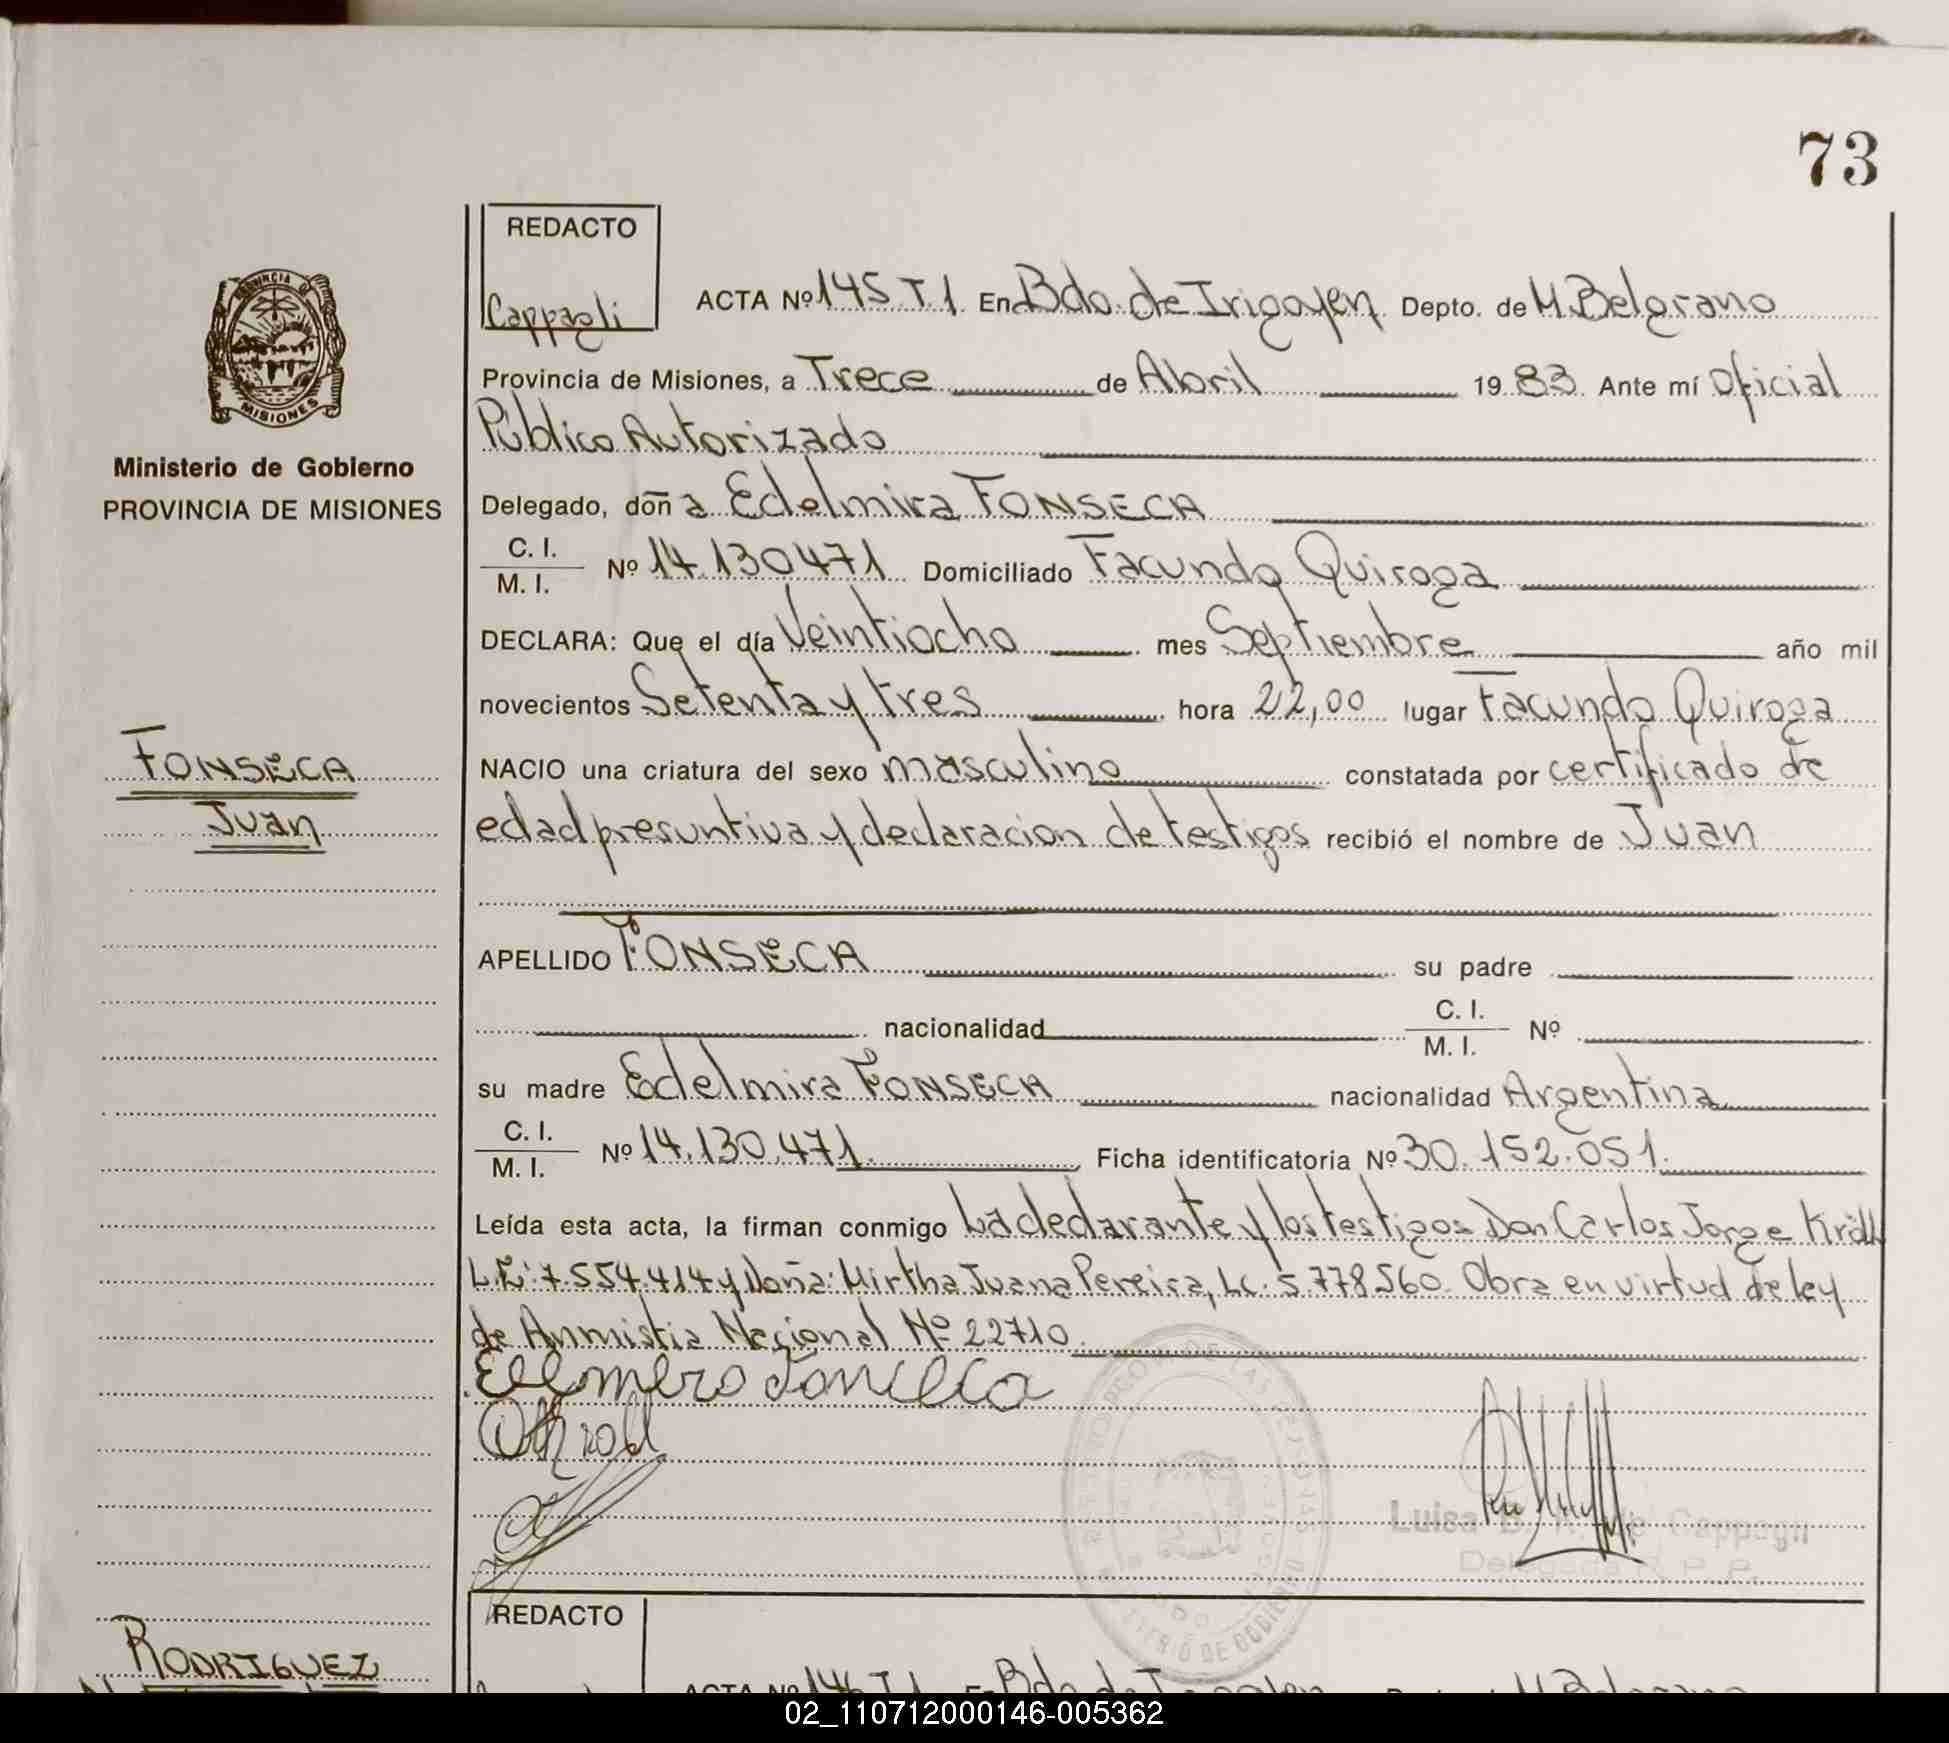 73
REDACTO
Cappagli
ACTA Nº 145 T.1 En Bdo. de Irigoyen Depto. de M. Belgrano
Provincia de Misiones, a Trece de Abril 1983. Ante mí Oficial
Público Autorizado
PROVINCIA DE
MISIONES
Ministerio de Gobierno
PROVINCIA DE MISIONES
Delegado, doña Edelmira FONSECA
C. I.
M. I.
Nº 14.130471 Domiciliado Facundo Quiroga
DECLARA: Que el día Veintiocho mes Septiembre año mil
novecientos Setenta y tres hora 22,00 lugar Facundo Quiroga
FONSECA
Juan
NACIO una criatura del sexo masculino constatada por certificado de
edad presuntiva y declaracion de testigos recibió el nombre de Juan
APELLIDO FONSECA su padre
nacionalidad C. I.
M. I. Nº
su madre Edelmira FONSECA nacionalidad Argentina
C. I.
M. I.
Nº 14.130.471. Ficha identificatoria Nº 30.152.051.
Leída esta acta, la firman conmigo La declarante y los testigos Don Carlos Jorge Kräll
L.E: 7.554.414 y Doña: Mirtha Juana Pereira, LC. 5.778560. Obra en virtud de ley
de Anmistia Nacional Nº 22710.
Luisa Cappagli
Delegada R. P. P.
MINISTERIO DE GOBIERNO
REDACTO
RODRIGUEZ
ACTA Nº 146 T.1 En Bdo. de Irigoyen M. Belgrano
02_110712000146-005362